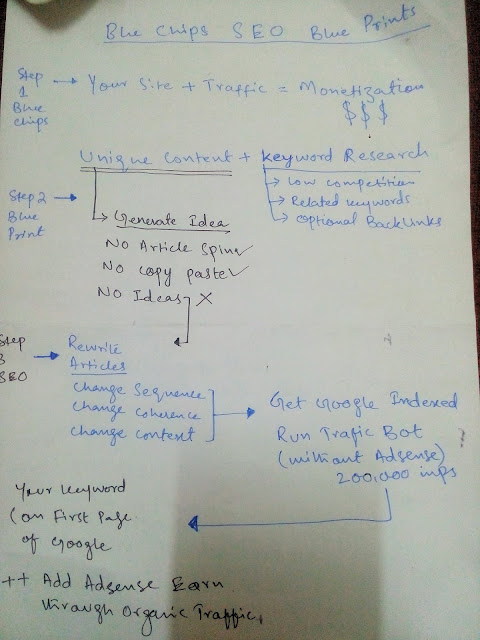 Blue Chips SEO Blue Prints
Step 1 Blue chips → Your Site + Traffic = Monetization
$ $ $
Unique Content + Keyword Research
→ Low competition
→ Related keywords
→ optional Backlinks
Step 2 Blue Print →
→ Generate Idea
No Article Spin ✓
No copy paste ✓
No Ideas X
Step 3 SEO → Rewrite
Articles
change Sequence
change coherence
change content
→ Get Google Indexed
Run Trafic Bot
(without Adsense)
200,000 imps
Your keyword
(on First Page
of Google
++ Add Adsense Earn
through Organic Traffic.